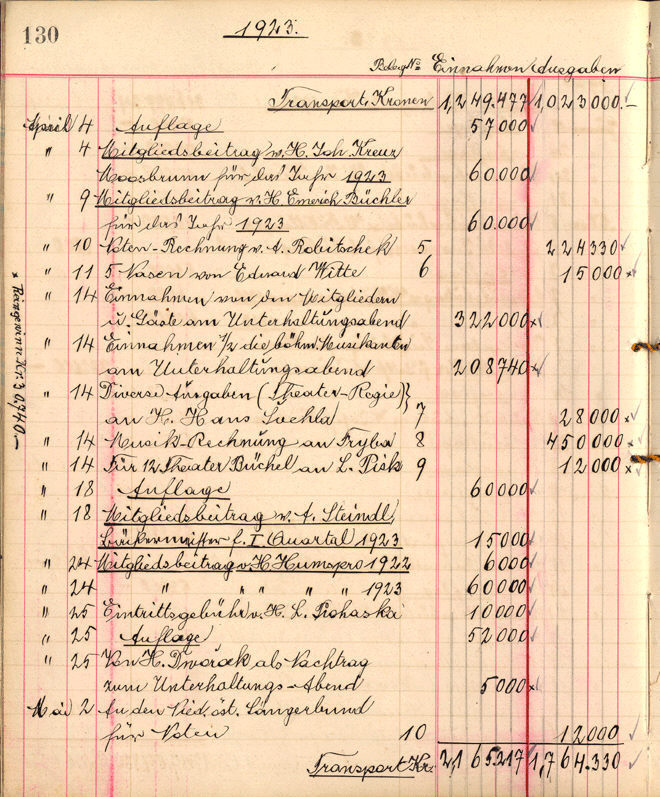 130
1923.
Beleg No Einnahmen Ausgaben
Transport Kronen 1,249.477 1,023000.–
April 4 Auflage 57000
" 4 Mitgliedsbeitrag v. H. Joh. Kreuz
Moosbrunn für das Jahr 1923 60.000
" 9 Mitgliedsbeitrag v. H. Emerich Büchler
für das Jahr 1923 60.000
" 10 Noten-Rechnung v. A. Robitschek 5 224330
" 11 5 Vasen von Eduard Witte 6 15000 x
" 14 Einnahmen von den Mitgliedern
u. Gäste am Unterhaltungsabend 322000 x
" 14 Einnahmen 1/2 die böhm. Musikanten
am Unterhaltungsabend 208740 x
" 14 Diverse Ausgaben (Theater-Regie)}
an H. Hans Suchla 7 28000 x
" 14 Musik-Rechnung an Fryba 8 450000 x
" 14 Für 12 Theater Büchel an L. Pisk 9 12000 x
" 18 Auflage 60000
" 18 Mitgliedsbeitrag v. A. Steindl,
f. I Quartal 1923 15000
" 24 Mitgliedsbeitrag v. H. Humspro 1922 6000
" 24 " " " " " 1923 60000
" 25 Eintrittsgebühr v. H. L. Prohaska 10000
" 25 Auflage 52000
" 25 Von H. Dworack als Nachtrag
zum Unterhaltungs-Abend 5000 x
Mai 2 An den Nied. öst. Sängerbund
für Noten 10 12000
Transport Kr. 2,165217 1,764.330
x Reingewinn Kr. 30,740.–